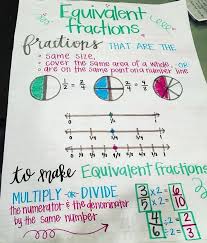 Equivalent
fractions
fractions THAT ARE THE
• same size,
• cover the same area of a whole, OR
• are on the same point on a number line
1/2 = 2/4
to make Equivalent fractions
MULTIPLY OR DIVIDE
the numerator & the denominator
by the same number
3 x2 = 6
5 x2 = 10
4 ÷2 = 2
6 ÷2 = 3